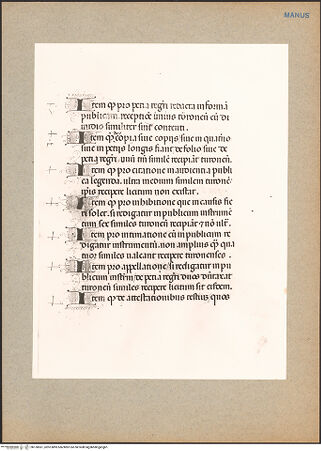 MANUS
Item ꝙ pro pecia regrī redacta in formā
publicam receptice unius turonēn eū di
midio similiter sint contenti.
Item ꝙ copia siue copijs siue in quatno
siue in petijs longis fiant de folio siue de
pecia regrī. unū tm̄ simile recipiāt turonen̄.
Item ꝙ pro citatione in audientia publi
ca legenda. ultra medium similem turonē
ipsis recipere licitum non existat.
Item ꝙ pro inhibitione que in causis fie
ri solet. si redigatur in publicum instrumē
tum sex similes turonen̄ recipiāt ⁊ nō ult̄.
Item pro intimatione cū in publicum re
digatur instrumentū. non amplius ꝙ̄ qua
tuor similes ualeant recipere turonenses.
Item pro appellatione si redigatur in pu
blicum instrm̄ de pecia regrī duos dūtaxat
turonen̄ similes recipere licitum sit eisdem.
Item ꝙ de attestationibus testiū quos